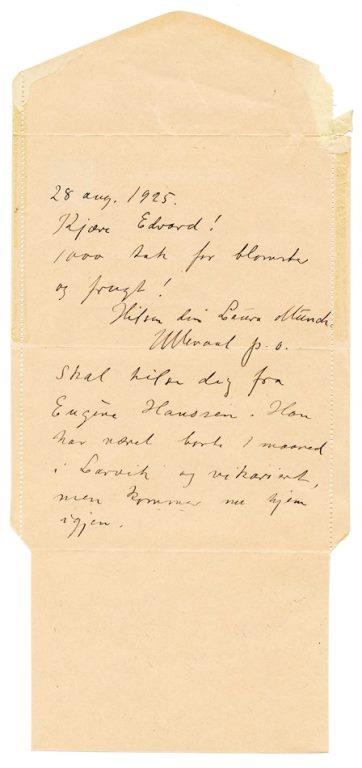 28 aug. 1925.
Kjære Edvard!
1000 tak for blomster
og frugt!
Hilsen din Laura Munch.
Ullevaal p. o.
Skal hilse dig fra
Eugène Hanssen. Han
har været borte 1 maaned
i Larvik og vikariert,
men kommer nu hjem
igjen.